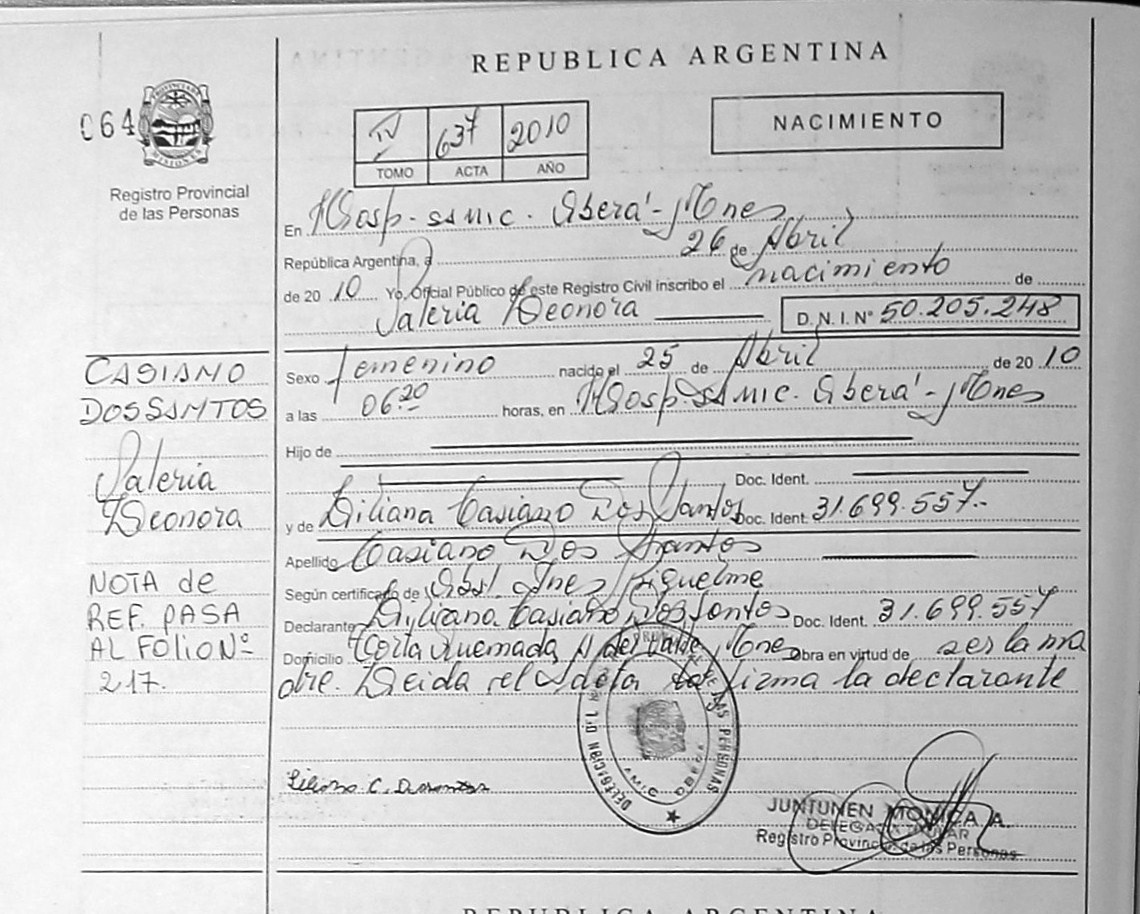 REPUBLICA ARGENTINA
064
PROVINCIA
MISIONES
Registro Provincial
de las Personas
IV 637 2010
TOMO ACTA AÑO
NACIMIENTO
En Hosp. SAMIC. Oberá - Mnes
República Argentina, a 26 de Abril
de 20 10 Yo, Oficial Público de este Registro Civil inscribo el nacimiento de
Valeria Leonora D. N. I. N° 50.205.248
Sexo femenino nacido el 25 de Abril de 20 10
a las 06.20 horas, en Hosp. SAMIC. Oberá - Mnes
Hijo de
Doc. Ident.
y de Liliana Casiano Dos Santos Doc. Ident. 31.699.557.-
Apellido Casiano Dos Santos
Según certificado de Obst. Ines Riquelme
Declarante Liliana Casiano Dos Santos Doc. Ident. 31.699.557
Domicilio Picada Mnes Obra en virtud de ser la ma
dre. Leida el Acta la firma la declarante
CASIANO
DOS SANTOS
Valeria
Leonora
NOTA de
REF. PASA
AL FOLIO Nº
217.
DELEGACION DE LAS PERSONAS
SAMIC OBERA
JUNTUNEN MONICA A.
DELEGADA TITULAR
Registro Provincial de las Personas
REPUBLICA ARGENTINA